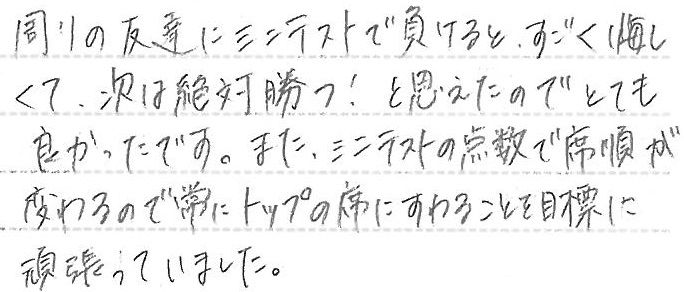 周りの友達にミニテストで負けると、すごく悔し
くて、次は絶対勝つ！と思えたのでとても
良かったです。また、ミニテストの点数で席順が
変わるので常にトップの席にすわることを目標に
頑張っていました。